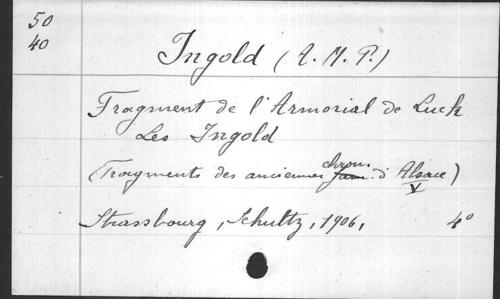 50
40
Ingold (A. M. P.)
Fragment de l'Armorial de Luck
Les Ingold
(Fragments des anciennes chron. d'Alsace)
V
Strassbourg, Schultz, 1906, 4°